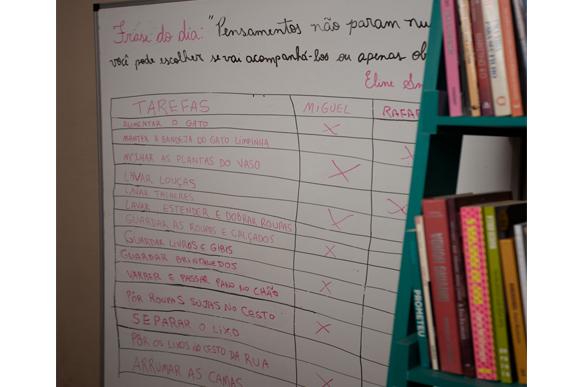 Frase do dia: "Pensamentos não param nu
você pode escolher se vai acompanhá-los ou apenas ob
Eline Sn
TAREFAS MIGUEL RAFAE
ALIMENTAR O GATO X
MANTER A BANDEJA DO GATO LIMPINHA X
MOLHAR AS PLANTAS DO VASO X
LAVAR LOUÇAS
LAVAR TALHERES X
LAVAR ESTENDER E DOBRAR ROUPAS X
GUARDAR AS ROUPAS E CALÇADOS
GUARDAR LIVROS E GIBIS X
GUARDAR BRINQUEDOS
VARRER E PASSAR PANO NO CHÃO X
PÔR ROUPAS SUJAS NO CESTO
SEPARAR O LIXO X
PÔR OS LIXOS NO CESTO DA RUA
ARRUMAR AS CAMAS X
PROMETEU